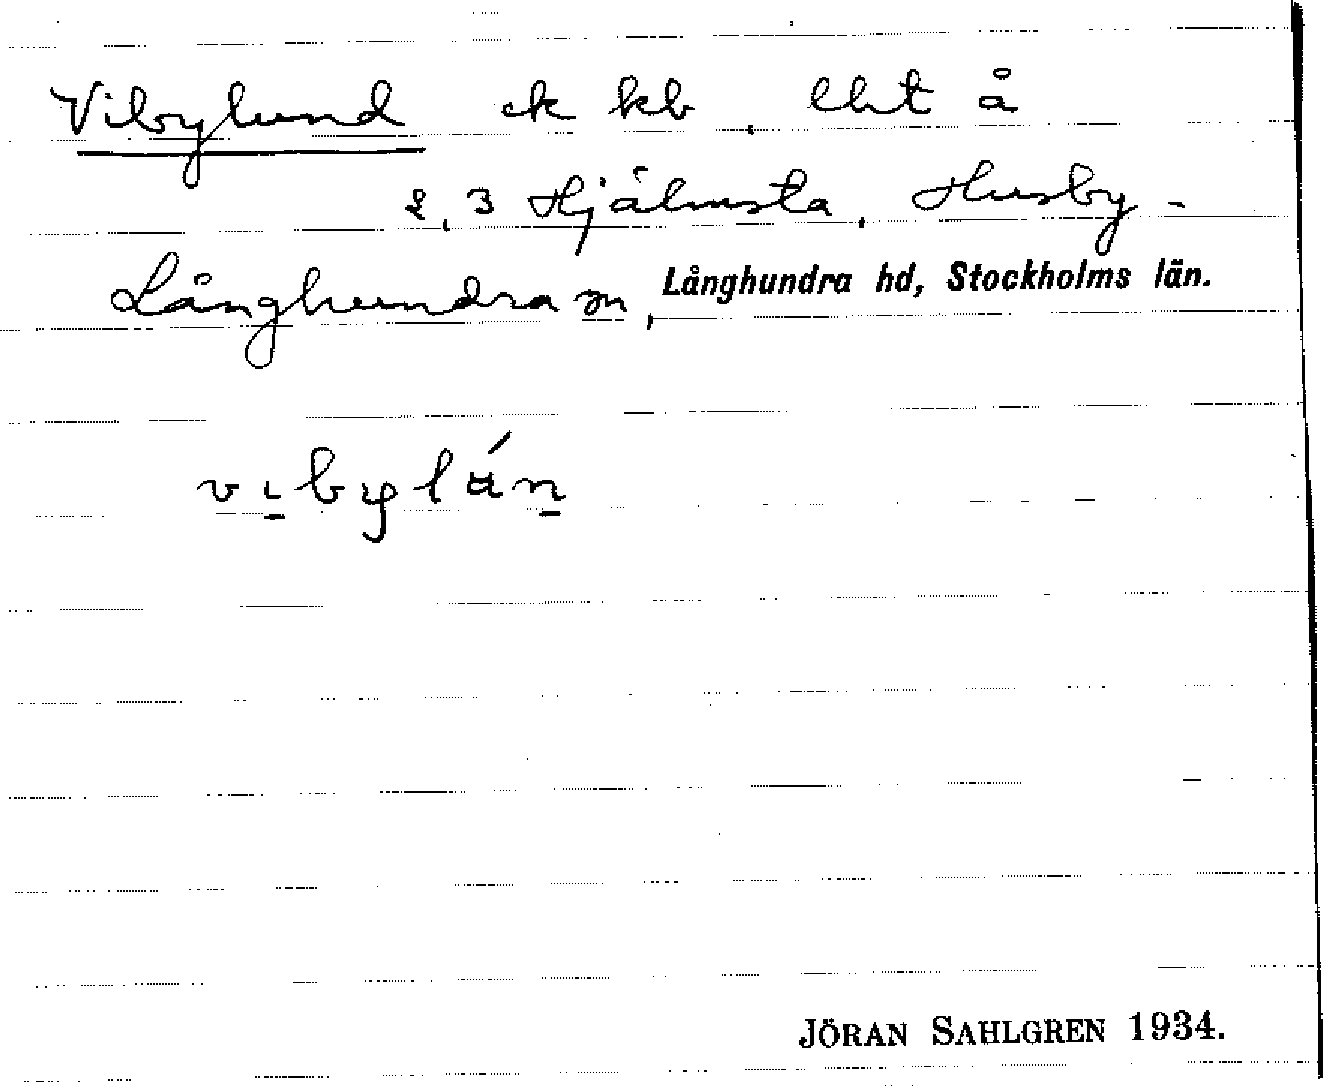 Vibylund ek kb, lht å
2, 3 Hjälmsta, Husby-
Långhundra sn, Långhundra hd, Stockholms län.
vɩbylán
JÖRAN SAHLGREN 1934.